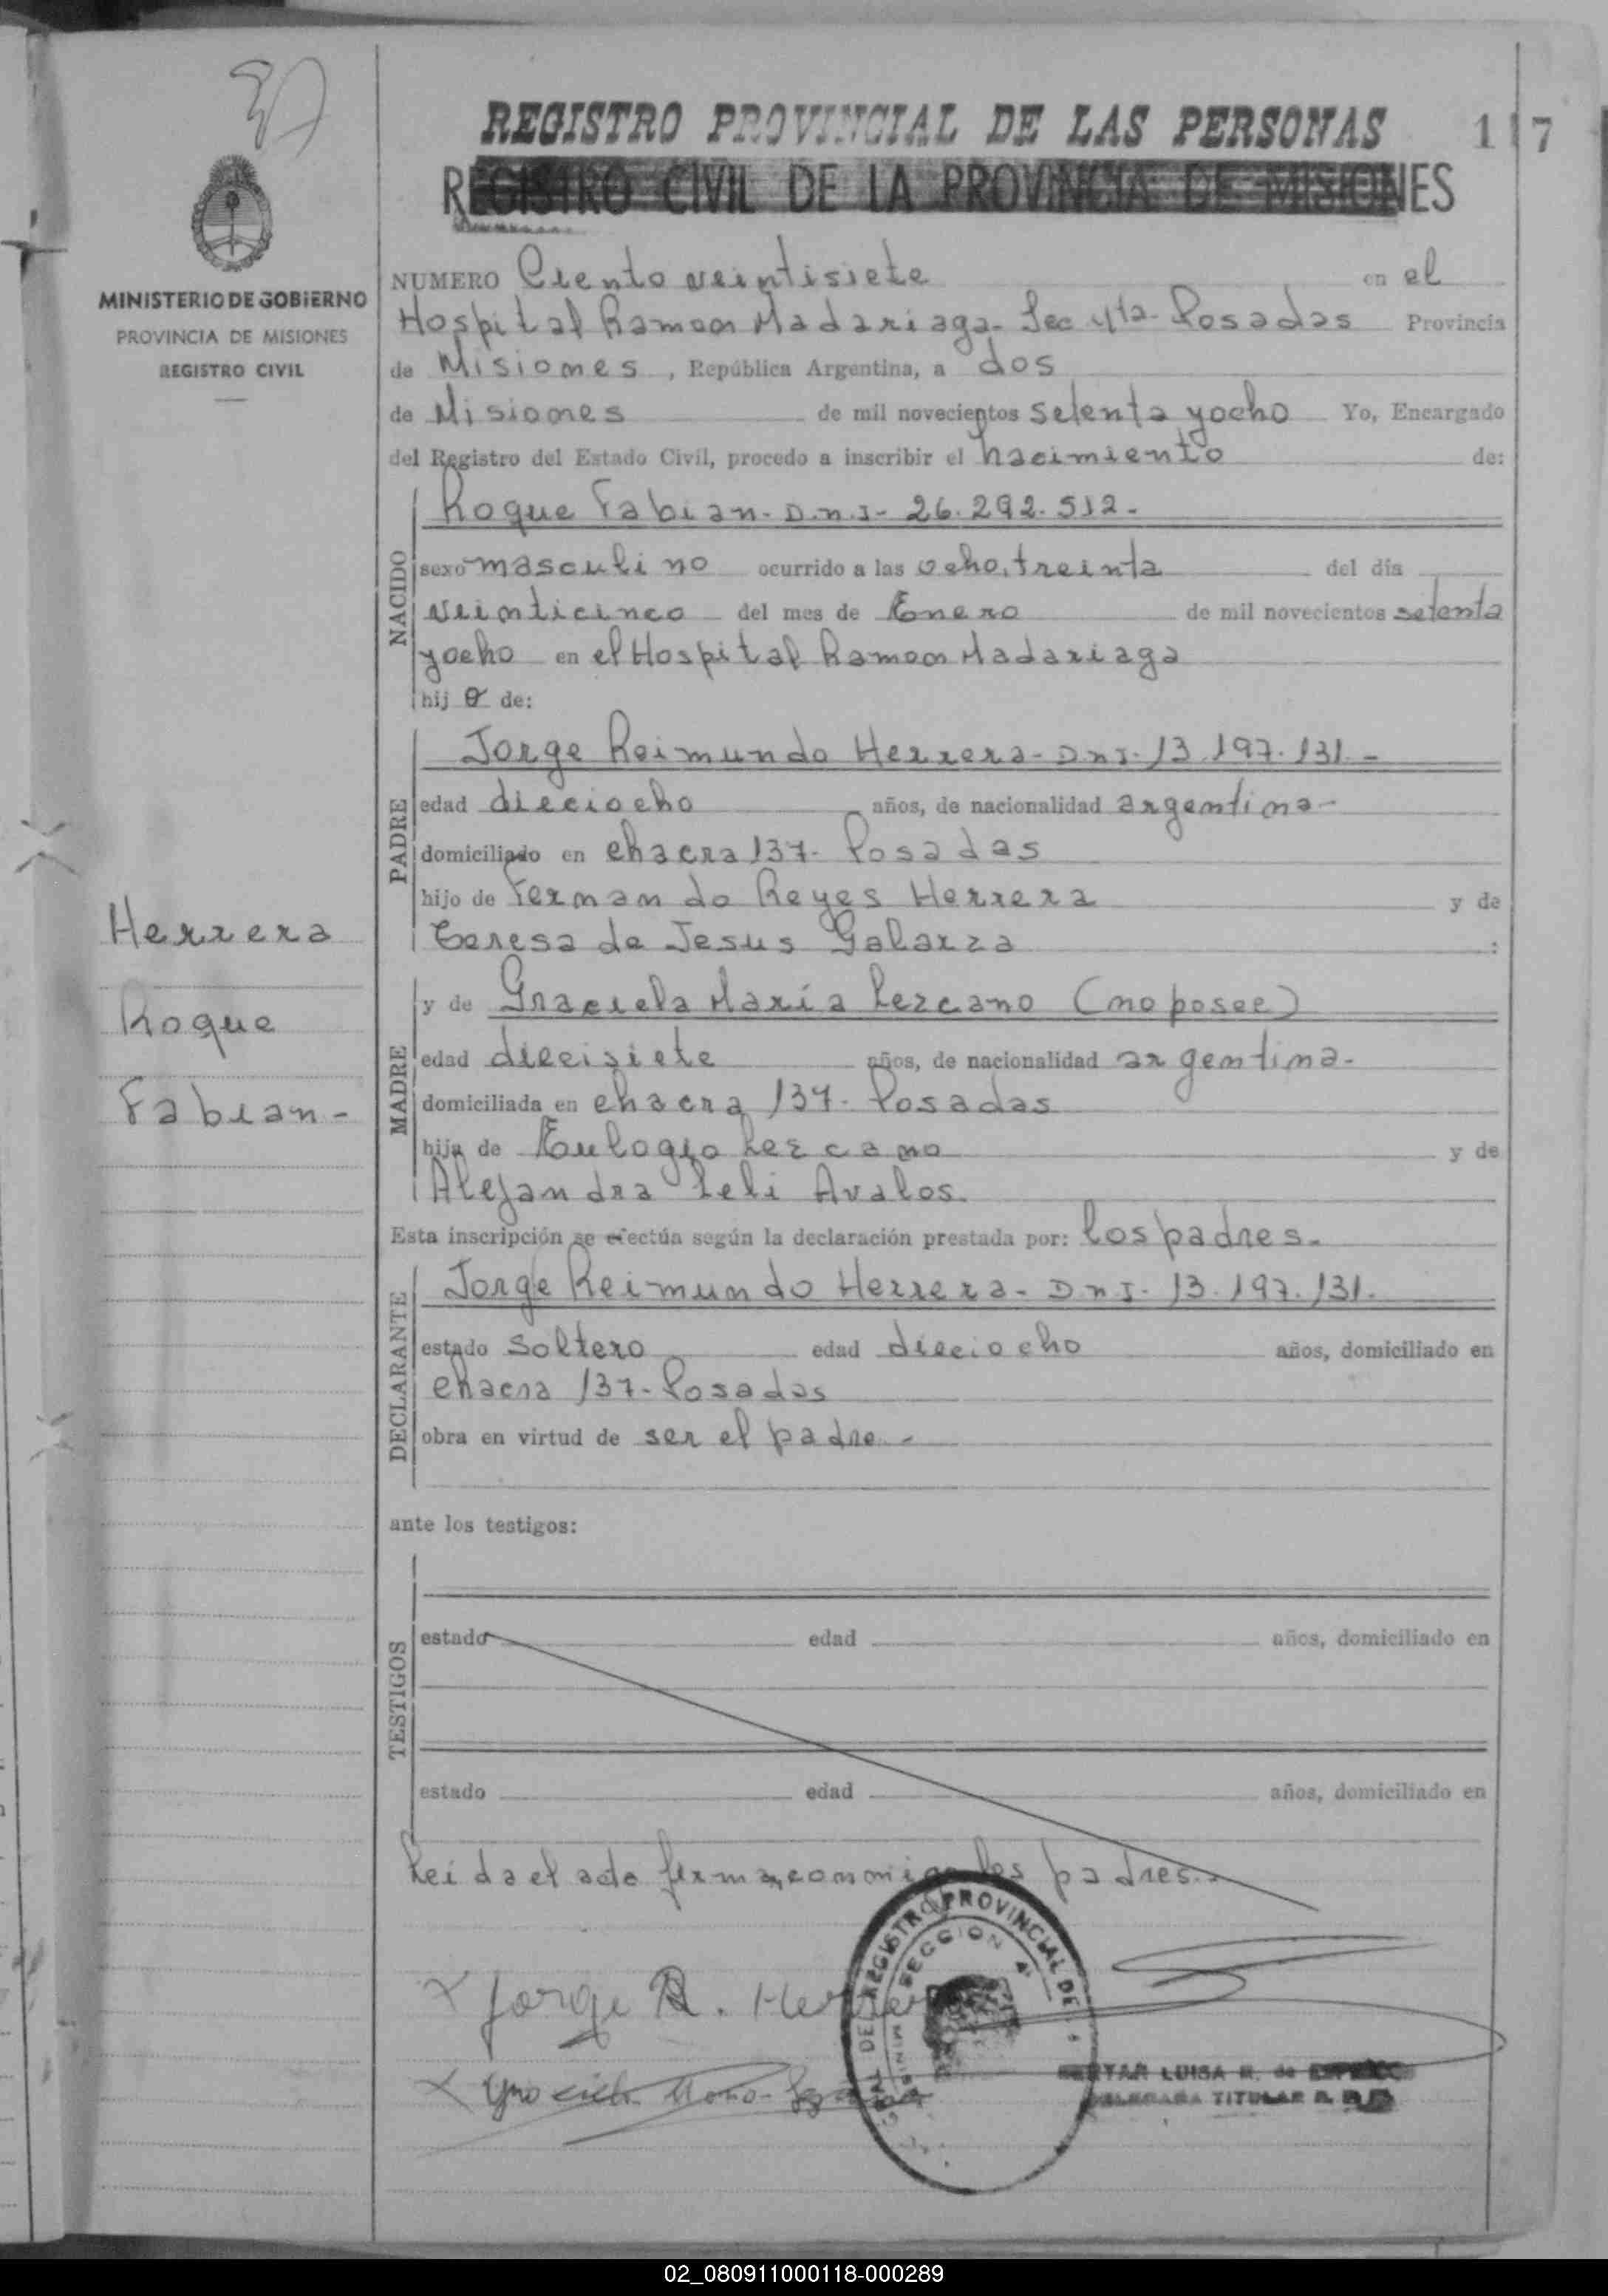 REGISTRO PROVINCIAL DE LAS PERSONAS
117
REGISTRO CIVIL DE LA PROVINCIA DE MISIONES
MINISTERIO DE GOBIERNO
PROVINCIA DE MISIONES
REGISTRO CIVIL
NUMERO Ciento veintisiete en el
Hospital Ramon Madariaga- Sec 4ta- Posadas Provincia
de Misiones, República Argentina, a dos
de Misiones de mil novecientos setenta y ocho Yo, Encargado
del Registro del Estado Civil, procedo a inscribir el nacimiento de:
NACIDO
Roque Fabian- D.n.I- 26.292.512.-
sexo masculino ocurrido a las ocho, treinta del día
veinticinco del mes de Enero de mil novecientos setenta
y ocho en el Hospital Ramon Madariaga
hijo de:
PADRE
Jorge Reimundo Herrera- D.n.I- 13.197.131.-
edad dieciocho años, de nacionalidad argentina-
domiciliado en chacra 137- Posadas
hijo de Fernando Reyes Herrera y de
Teresa de Jesus Galarza :
Herrera
Roque
Fabian-
MADRE
y de Graciela María Lezcano (no posee)
edad diecisiete años, de nacionalidad argentina-
domiciliada en chacra 137- Posadas
hija de Eulogio Lezcano y de
Alejandra Leli Avalos.
Esta inscripción se efectúa según la declaración prestada por: los padres.
DECLARANTE
Jorge Reimundo Herrera- D.n.I- 13.197.131.
estado soltero edad dieciocho años, domiciliado en
chacra 137- Posadas
obra en virtud de ser el padre.-
ante los testigos:
TESTIGOS
estado edad años, domiciliado en
estado edad años, domiciliado en
Leida el acta firman conmigo los padres.-
REGISTRO PROVINCIAL DE
SECCION 4ª
x Jorge R. Herrera
LUISA R. de
DELEGADA TITULAR R. P. P.
02_080911000118-000289